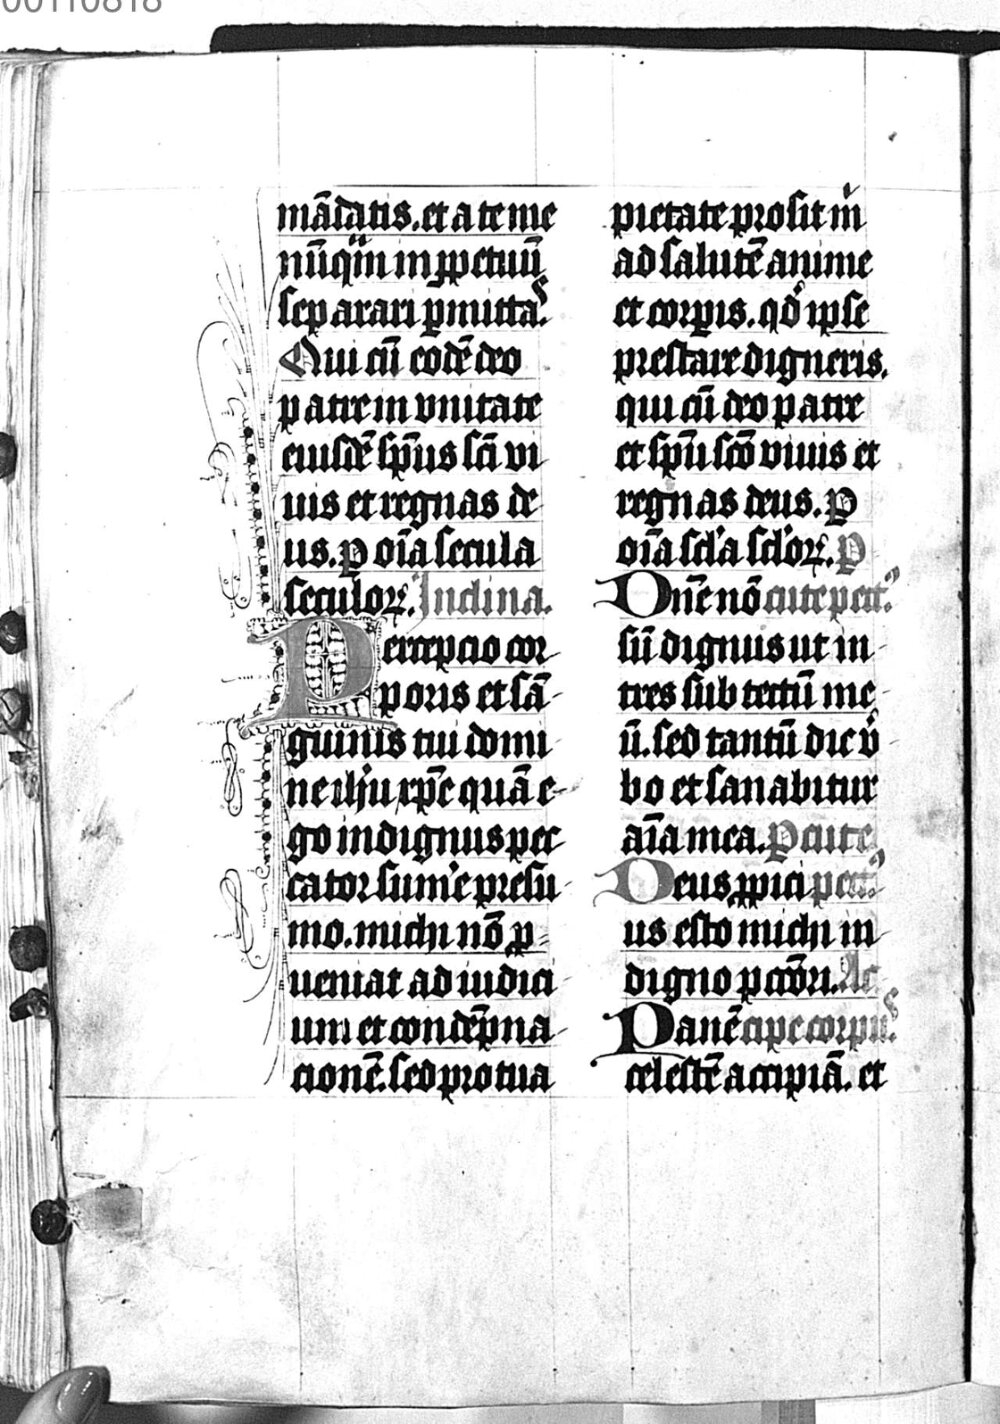 00110818
mādatis. et a te me
nūq̄m in ꝑpetuū
separari ꝑmittas.
Qui cū eodē deo
patre in vnitate
eiusdē sp̄us sc̄i vi
uis et regnas de
us. ꝑ oīa secula
seculoꝝ. Inclina.
Percepcio cor
poris et sā
guinis tui domi
ne ihū xp̄e quā e
go indignus pec
cator sum̄e presu
mo. michi nō ꝓ
ueniat ad iudici
um et condēpna
cionē. sed pro tua
pietate prosit m̄
ad salutē anime
et corꝑis. qd̄ ipse
prestare digneris.
qui cū deo patre
et sp̄u scō viuis et
regnas deus. ꝑ
oīa scl'a scl'oꝝ. P
Dn̄e nō cute pect.
sū dignus ut in
tres sub tectū me
ū. sed tantū dic v̓
bo et sanabitur
aīa mea. Pcute
Deus ꝓpici pect.
us esto michi in
digno pctōri. Ac
Panē cipe corpus.
celestē accipiā. et